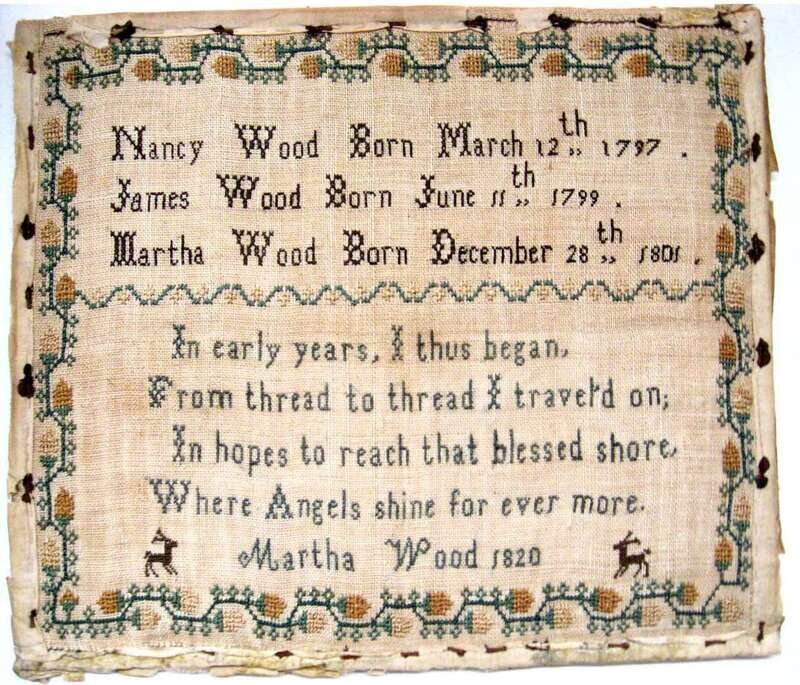 Nancy Wood Born March 12th,, 1797 .
James Wood Born June 11th,, 1799 .
Martha Wood Born December 28th,, 1801 .
In early years, I thus began,
From thread to thread I travel'd on;
In hopes to reach that blessed shore,
Where Angels shine for ever more.
Martha Wood 1820